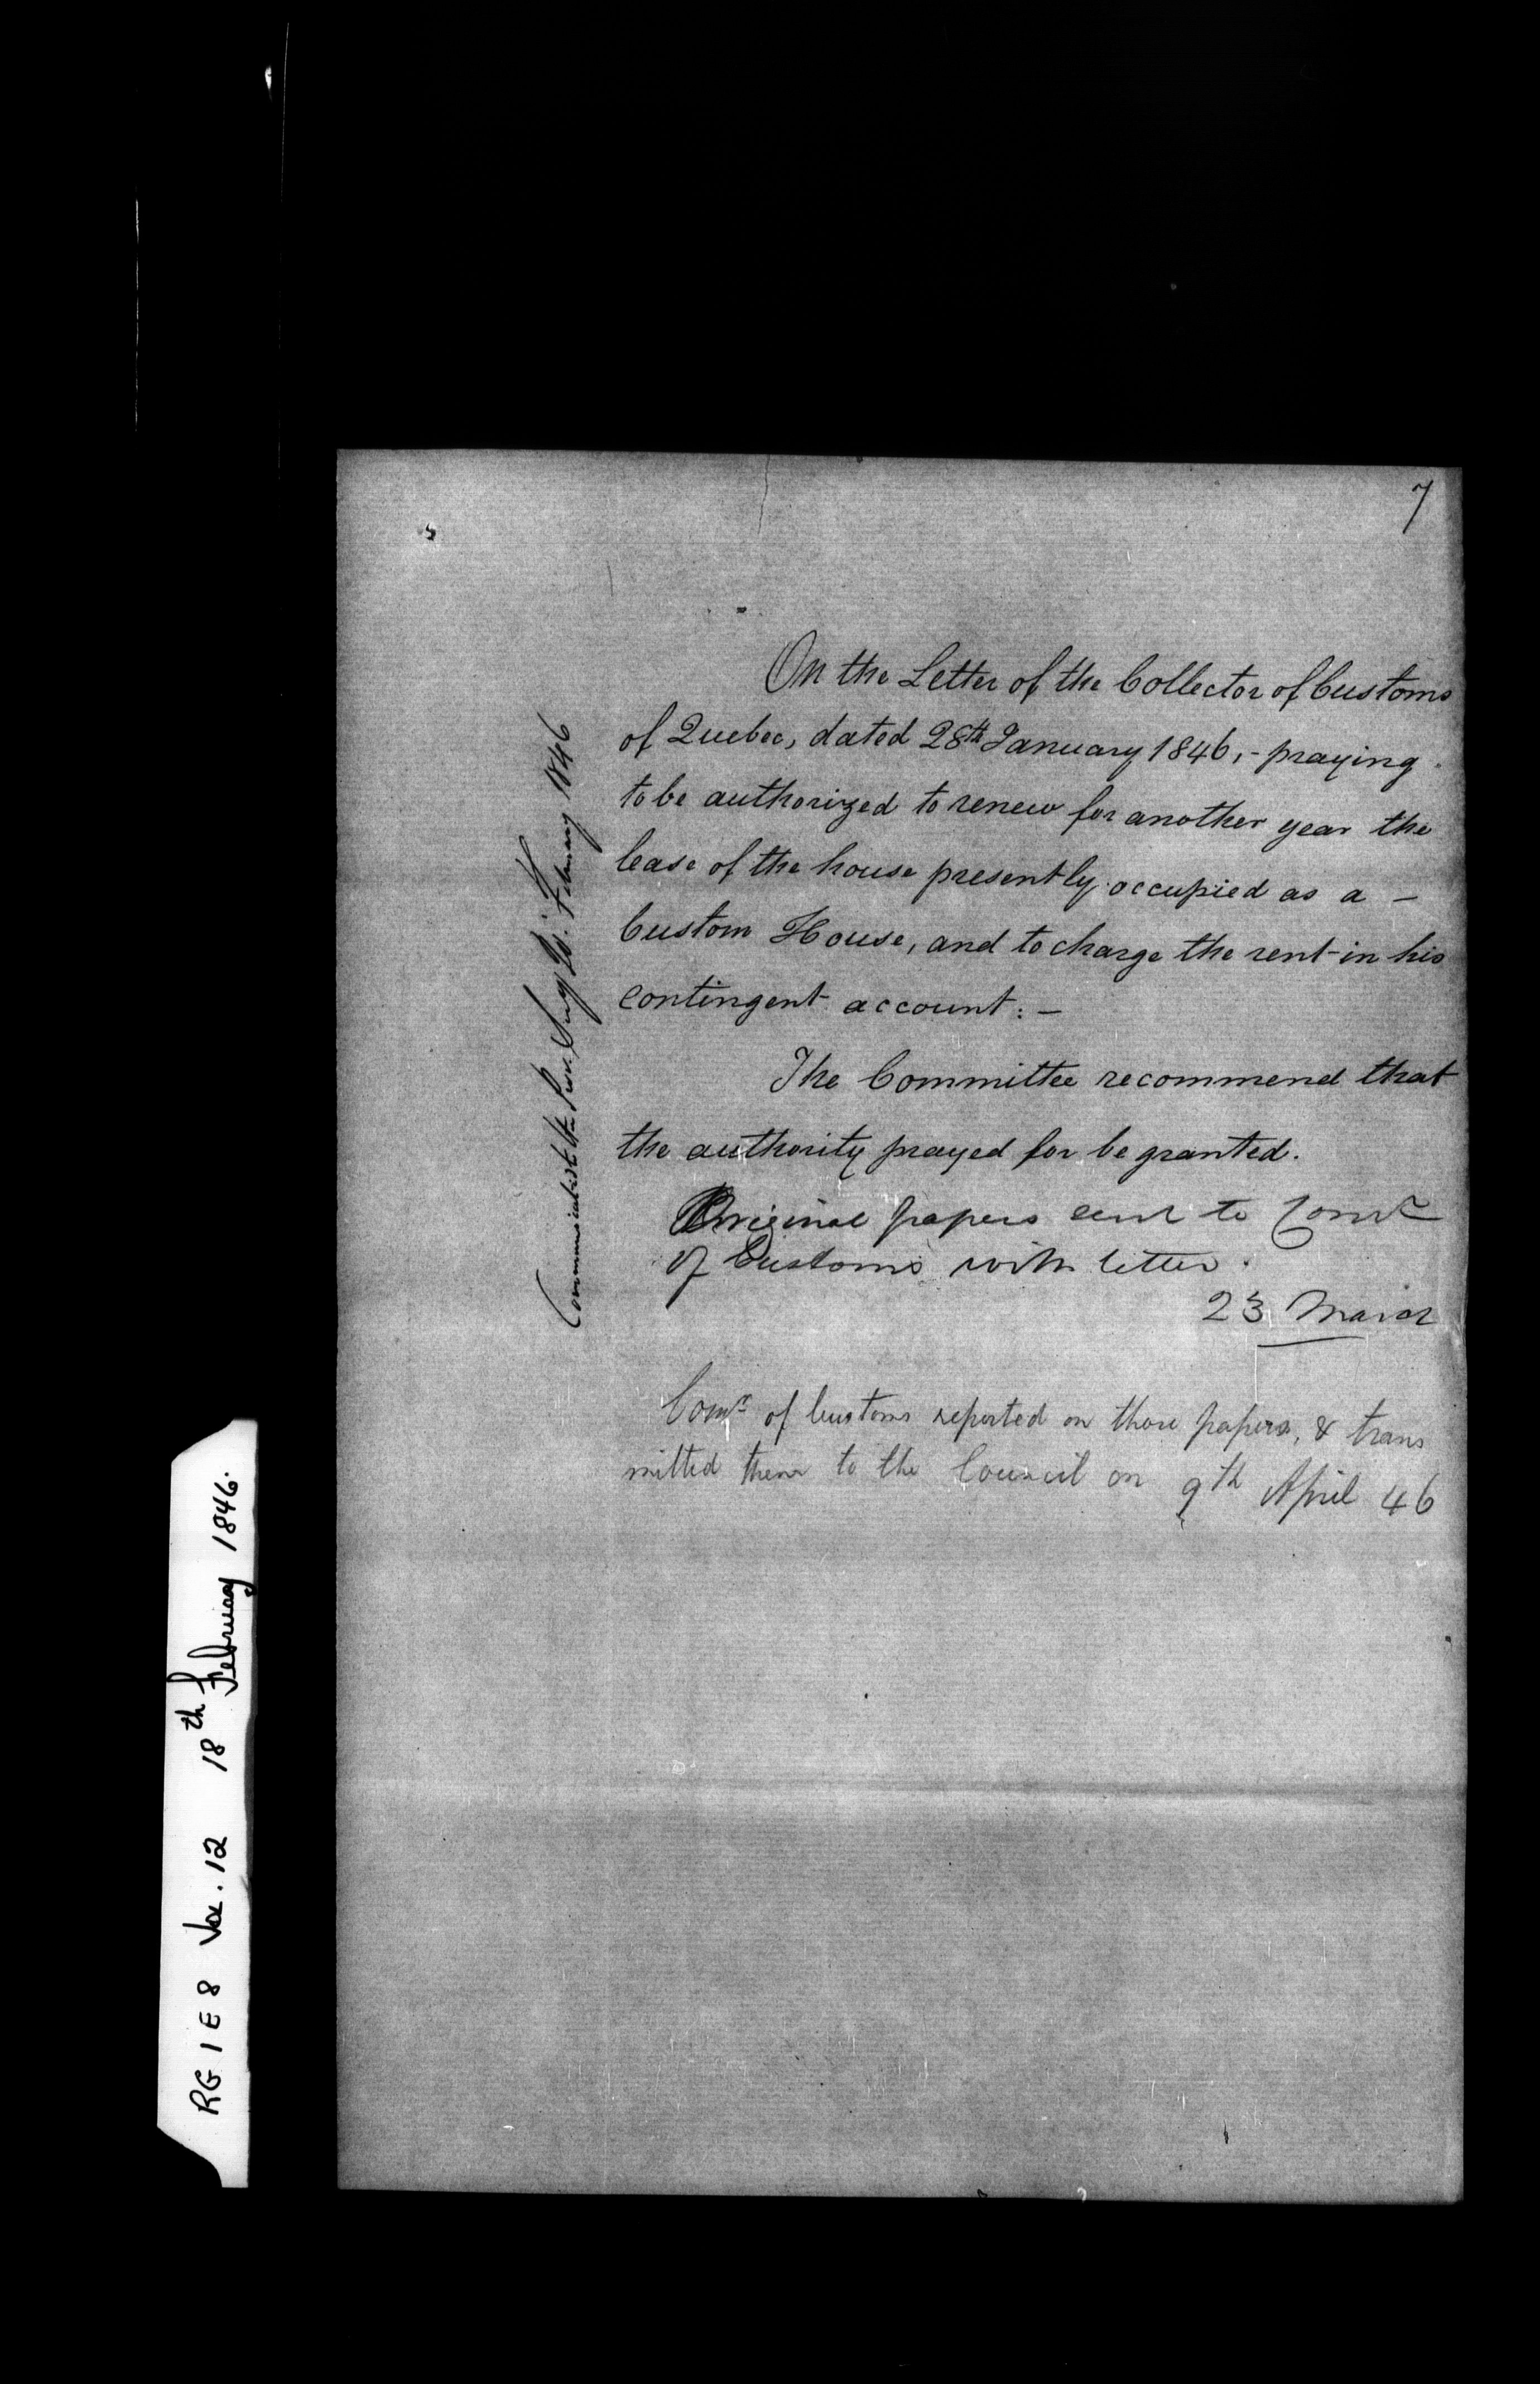 7
On the Letter of the Collector of Customs
of Quebec, dated 28th January 1846,- praying
to be authorized to renew for another year the
lease of the house presently occupied as a -
Custom House, and to charge the rent in his
contingent account: -
The Committee recommend that
the authority prayed for be granted.
Original papers sent to Comr
of Customs with letter.
23 March
Comr of Customs reported on those papers, & trans
mitted them to the Council on 9th April 46
February 1846
RG 1 E 8 Vol. 12 18th February 1846.